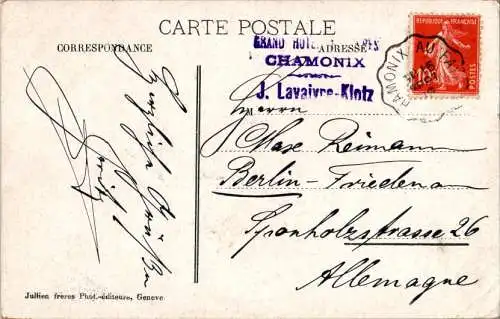 CARTE POSTALE
CORRESPONDANCE
ADRESSE
GRAND HOTEL ALPES
CHAMONIX
J. Lavaivre-Klotz
REPUBLIQUE FRANÇAISE
POSTES
CHAMONIX AU
Herrn
Max Reimann
Berlin-Friedenau
Sponholzstrasse 26
Allemagne
Herzliche Grüße
Jullien frères Phot.-éditeurs, Geneve.